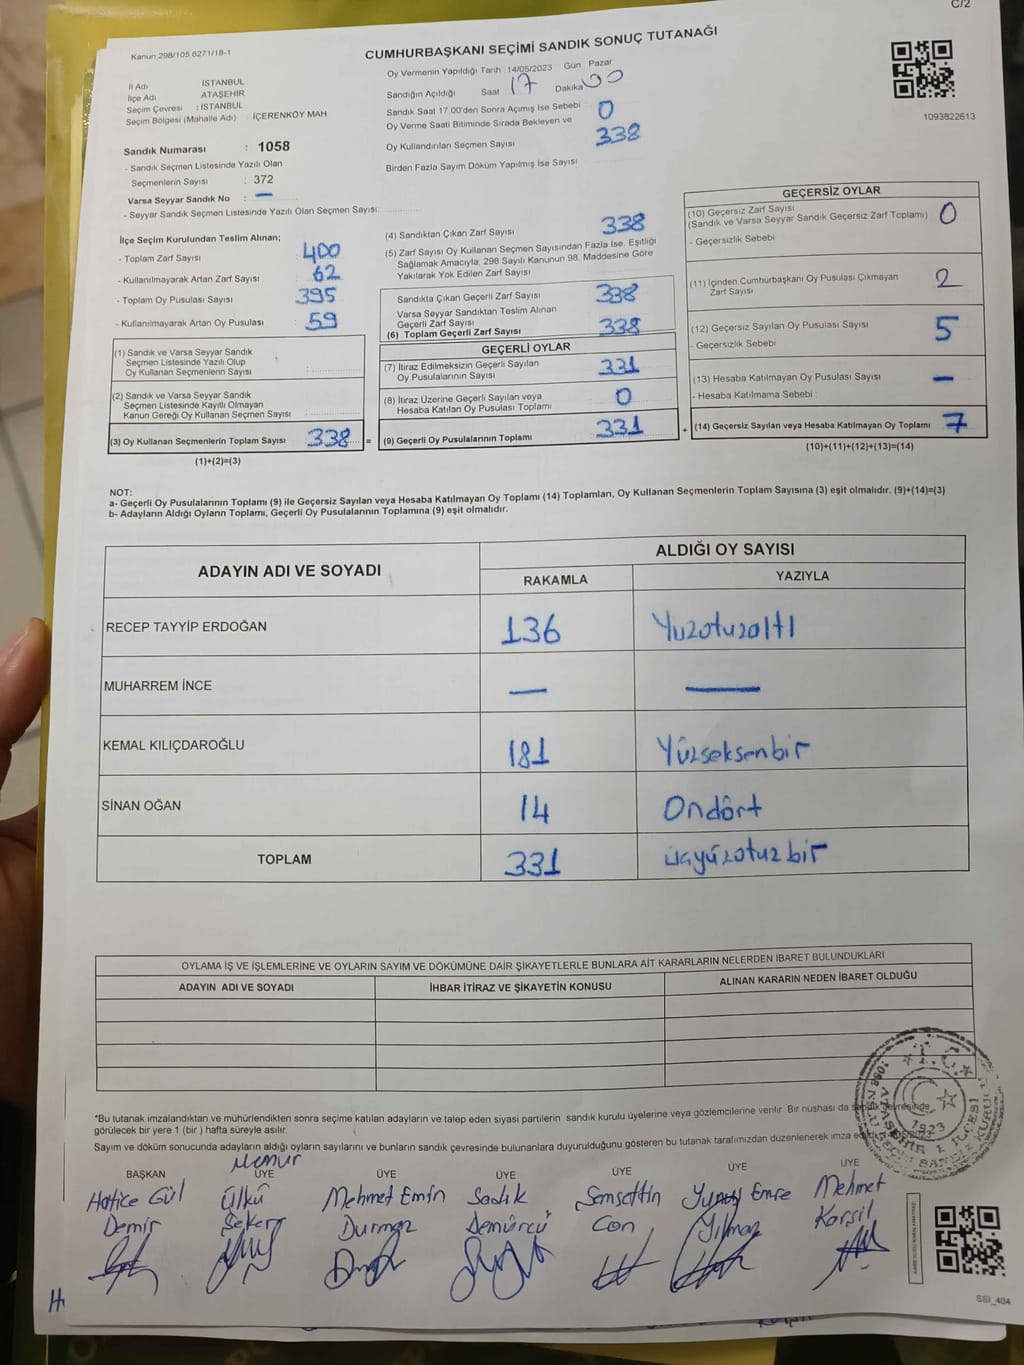 C/2
Kanun:298/105.6271/18-1
CUMHURBAŞKANI SEÇİMİ SANDIK SONUÇ TUTANAĞI
İl Adı İSTANBUL
İlçe Adı ATAŞEHİR
Seçim Çevresi : İSTANBUL
Seçim Bölgesi (Mahalle Adı) : İÇERENKÖY MAH
Oy Vermenin Yapıldığı Tarih 14/05/2023 Gün Pazar
Sandığın Açıldığı Saat 17 Dakika 00
Sandık Saat 17.00'den Sonra Açımış İse Sebebi
Oy Verme Saati Bitiminde Sırada Bekleyen ve 0
Oy Kullandırılan Seçmen Sayısı 338
Birden Fazla Sayım Döküm Yapılmış İse Sayısı
1093822613
Sandık Numarası : 1058
- Sandık Seçmen Listesinde Yazılı Olan
Seçmenlerin Sayısı : 372
Varsa Seyyar Sandık No : —
- Seyyar Sandık Seçmen Listesinde Yazılı Olan Seçmen Sayısı:
İlçe Seçim Kurulundan Teslim Alınan;
- Toplam Zarf Sayısı 400
- Kullanılmayarak Artan Zarf Sayısı 62
- Toplam Oy Pusulası Sayısı 395
- Kullanılmayarak Artan Oy Pusulası 59
(1) Sandık ve Varsa Seyyar Sandık
Seçmen Listesinde Yazılı Olup
Oy Kullanan Seçmenlerin Sayısı :
(2) Sandık ve Varsa Seyyar Sandık
Seçmen Listesinde Kayıtlı Olmayan
Kanun Gereği Oy Kullanan Seçmen Sayısı
(3) Oy Kullanan Seçmenlerin Toplam Sayısı 338 =
(1)+(2)=(3)
(4) Sandıktan Çıkan Zarf Sayısı 338
(5) Zarf Sayısı Oy Kullanan Seçmen Sayısından Fazla İse, Eşitliği
Sağlamak Amacıyla; 298 Sayılı Kanunun 98. Maddesine Göre
Yakılarak Yok Edilen Zarf Sayısı
Sandıkta Çıkan Geçerli Zarf Sayısı 338
Varsa Seyyar Sandıktan Teslim Alınan
Geçerli Zarf Sayısı
(6) Toplam Geçerli Zarf Sayısı 338
GEÇERLİ OYLAR
(7) İtiraz Edilmeksizin Geçerli Sayılan
Oy Pusulalarının Sayısı 331
(8) İtiraz Üzerine Geçerli Sayılan veya
Hesaba Katılan Oy Pusulası Toplamı 0
(9) Geçerli Oy Pusulalarının Toplamı 331 +
GEÇERSİZ OYLAR
(10) Geçersiz Zarf Sayısı
(Sandık ve Varsa Seyyar Sandık Geçersiz Zarf Toplamı) 0
- Geçersizlik Sebebi
(11) İçinden Cumhurbaşkanı Oy Pusulası Çıkmayan
Zarf Sayısı 2
(12) Geçersiz Sayılan Oy Pusulası Sayısı 5
- Geçersizlik Sebebi
(13) Hesaba Katılmayan Oy Pusulası Sayısı —
- Hesaba Katılmama Sebebi
(14) Geçersiz Sayılan veya Hesaba Katılmayan Oy Toplamı 7
(10)+(11)+(12)+(13)=(14)
NOT:
a- Geçerli Oy Pusulalarının Toplamı (9) ile Geçersiz Sayılan veya Hesaba Katılmayan Oy Toplamı (14) Toplamları, Oy Kullanan Seçmenlerin Toplam Sayısına (3) eşit olmalıdır. (9)+(14)=(3)
b- Adayların Aldığı Oyların Toplamı, Geçerli Oy Pusulalarının Toplamına (9) eşit olmalıdır.
ADAYIN ADI VE SOYADI ALDIĞI OY SAYISI
RAKAMLA YAZIYLA
RECEP TAYYİP ERDOĞAN 136 Yüzotuzaltı
MUHARREM İNCE — —
KEMAL KILIÇDAROĞLU 181 Yüzseksenbir
SİNAN OĞAN 14 Ondört
TOPLAM 331 üçyüzotuzbir
OYLAMA İŞ VE İŞLEMLERİNE VE OYLARIN SAYIM VE DÖKÜMÜNE DAİR ŞİKAYETLERLE BUNLARA AİT KARARLARIN NELERDEN İBARET BULUNDUKLARI
ADAYIN ADI VE SOYADI İHBAR İTİRAZ VE ŞİKAYETİN KONUSU ALINAN KARARIN NEDEN İBARET OLDUĞU
*Bu tutanak imzalandıktan ve mühürlendikten sonra seçime katılan adayların ve talep eden siyasi partilerin sandık kurulu üyelerine veya gözlemcilerine verilir. Bir nüshası da sandık çevresinde
görülecek bir yere 1 (bir ) hafta süreyle asılır.
Sayım ve döküm sonucunda adayların aldığı oyların sayılarını ve bunların sandık çevresinde bulunanlara duyurulduğunu gösteren bu tutanak tarafımızdan düzenlenerek imza
T.C.
ATAŞEHİR 1. İLÇESİ
1058 NOLU SEÇİM SANDIK KURULU
1923
Memur
BAŞKAN ÜYE ÜYE ÜYE ÜYE ÜYE ÜYE
Hatice Gül Ülkü Mehmet Emin Sadık Şemsettin Yunus Emre Mehmet
Demir Şeker Durmaz Demürcü Can Yılmaz Karşil
SSI_404